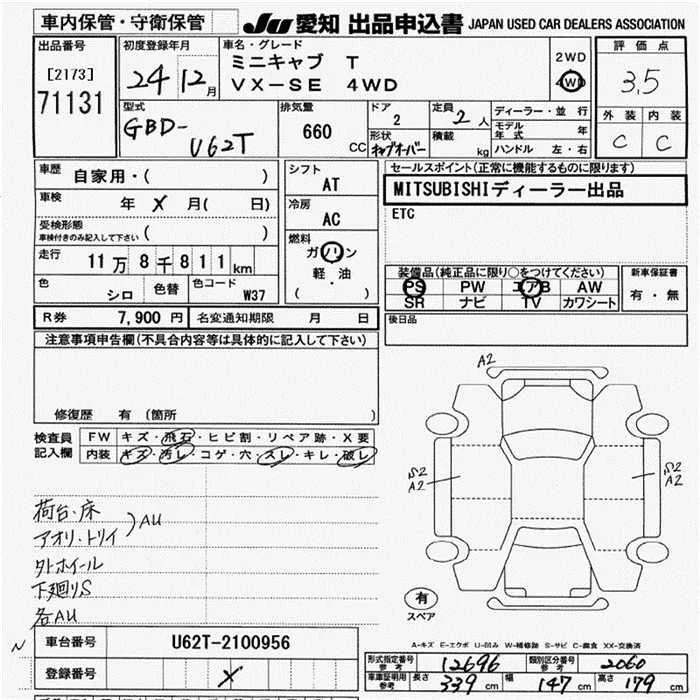 車内保管・守衛保管
JU 愛知 出品申込書 JAPAN USED CAR DEALERS ASSOCIATION
出品番号
[2173]
71131
初度登録年月
24 12月
車名・グレード
ミニキャブ T
VX-SE 4WD
2WD
4WD
評価点
3.5
外装 内装
C C
型式
GBD-
U62T
排気量
660
CC
ドア
2
定員
2人
形状
キャブオーバー
積載
kg
ディーラー・並行
モデル年式 年
ハンドル 左・右
車歴
自家用・( )
車検 年 X 月( 日)
受検形態
車検付きのみ記入して下さい ( )
走行 11万8千811km
色 シロ 色替 色コード W37
シフト
AT
冷房
AC
燃料
ガソリン
軽・油
( ・ )
セールスポイント(正常に機能するものに限ります)
MITSUBISHIディーラー出品
ETC
装備品(純正品に限り○をつけてください)
PS PW エアB AW
SR ナビ TV カワシート
新車保証書
有・無
後日品
R券 7,900 円 名変通知期限 月 日
注意事項申告欄(不具合内容等は具体的に記入して下さい)
修復歴 有(箇所 )
検査員
記入欄
FW キズ・飛石・ヒビ割・リペア跡・X要
内装 キズ・汚レ・コゲ・穴・スレ・キレ・破レ
荷台・床
アオリ・トリイ
)AU
外ホイール
下廻りS
各AU
A2
S2
A2
S2
A2
有
スペア
A-キズ E-エクボ U-凹み W-補修跡 S-サビ C-腐食 XX-交換済
N
車台番号 U62T-2100956
登録番号 X
形式指定番号
参考
12696
類別区分番号
参考
2060
車庫証明用
参考
長さ 339 cm 幅 147 cm 高さ 179 cm